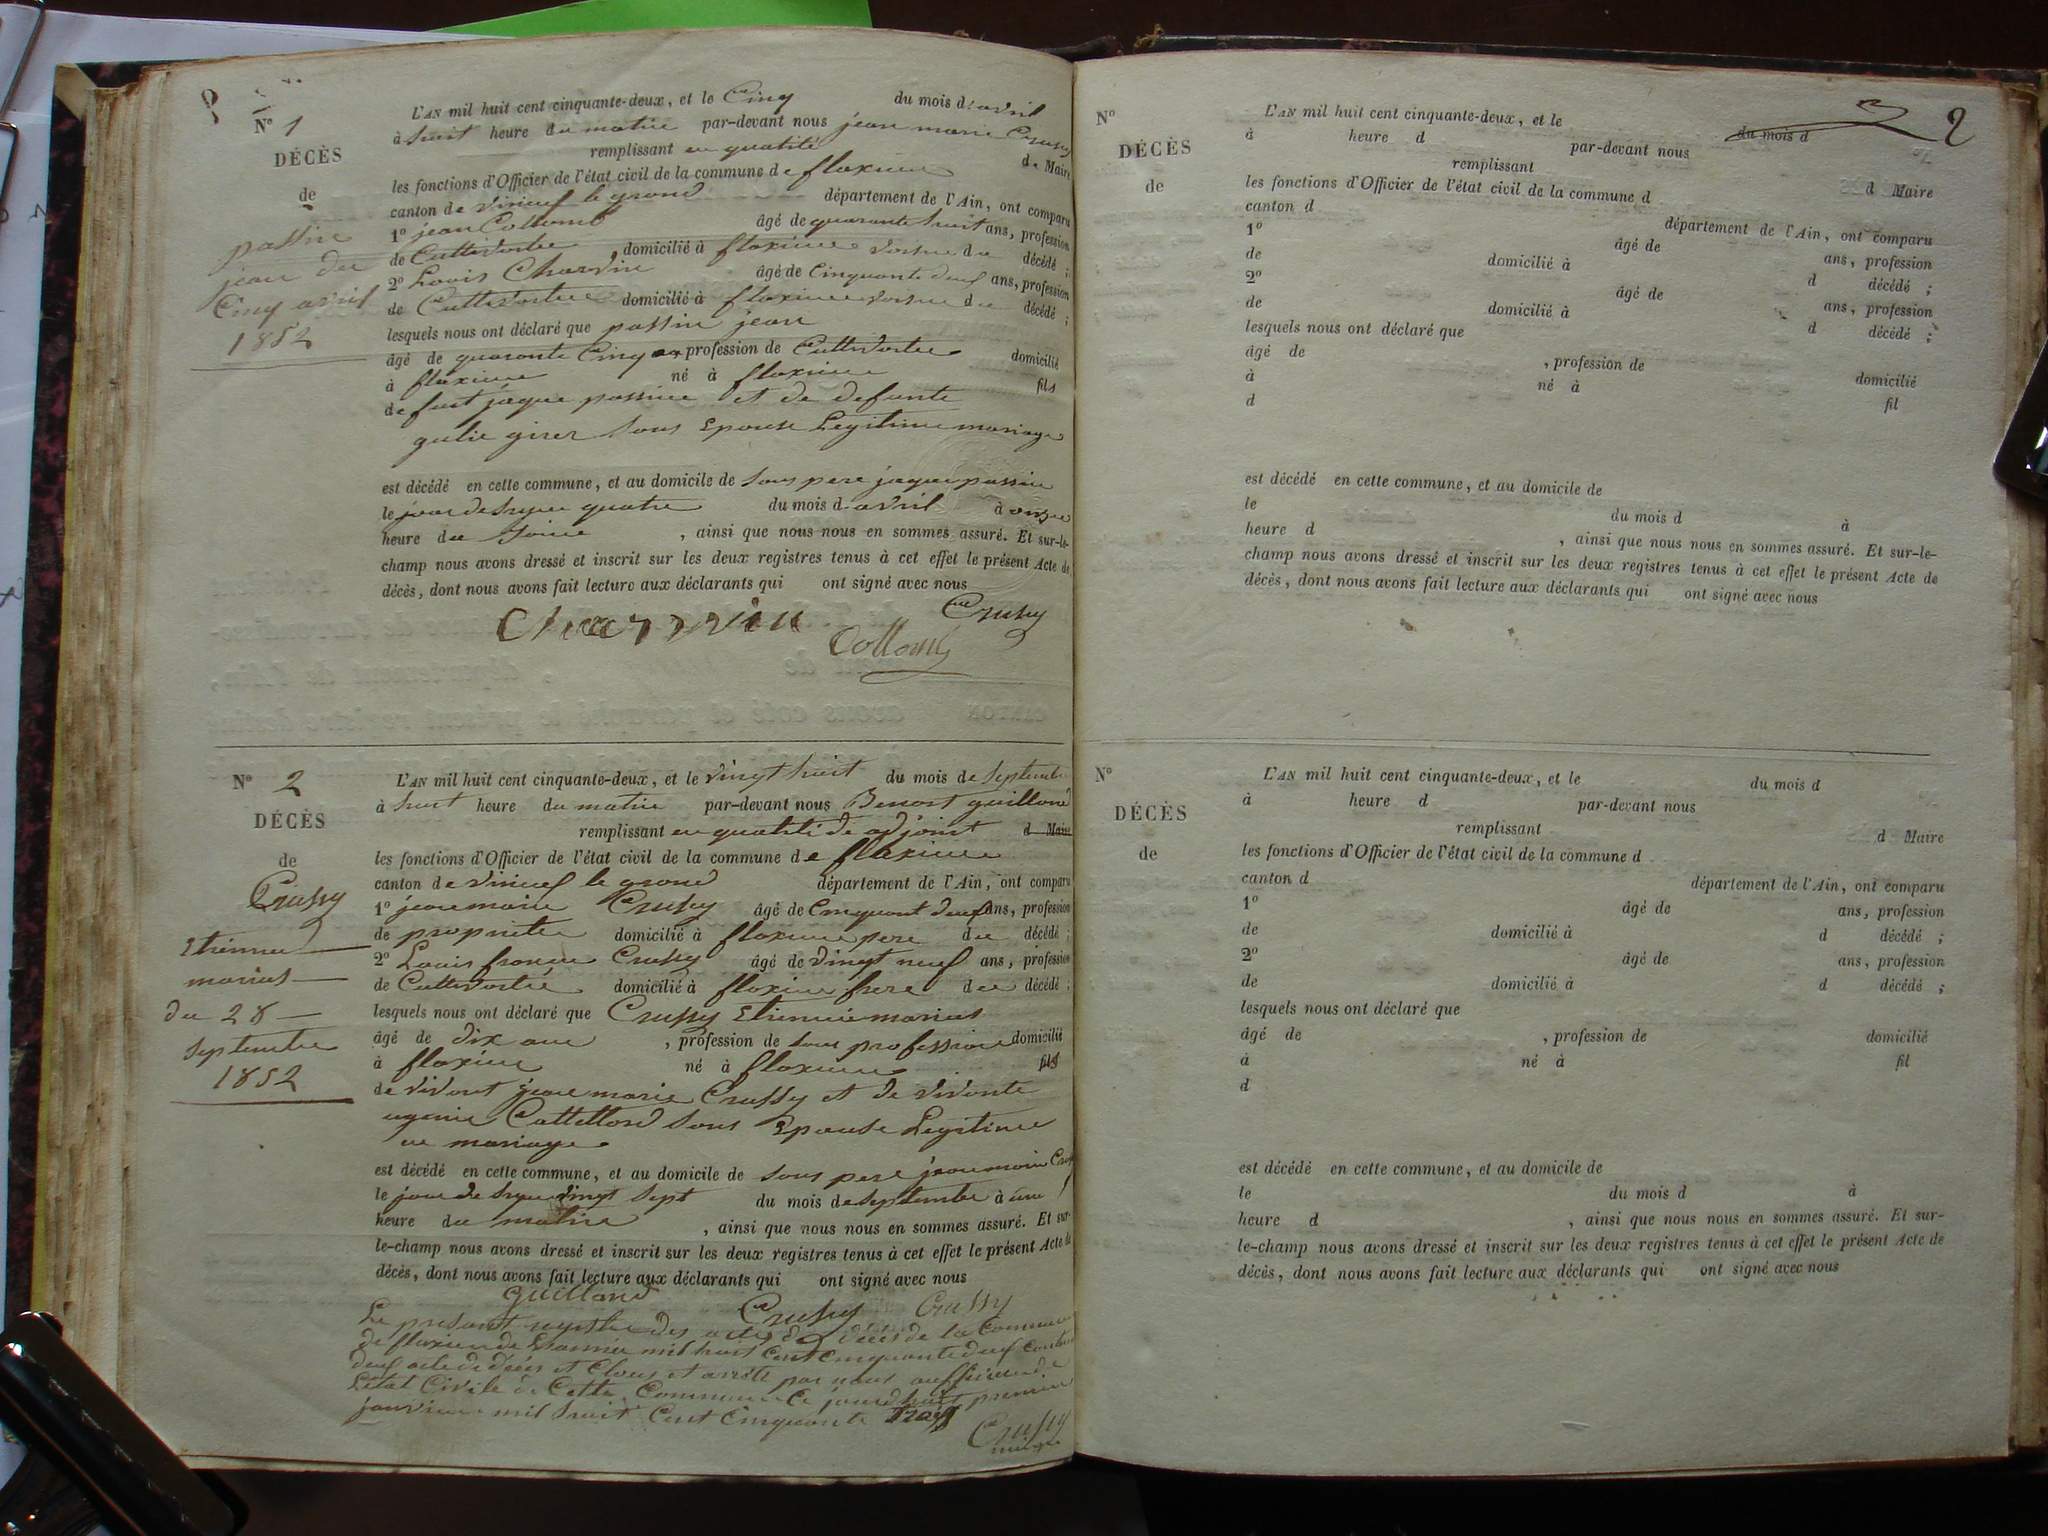 N° 1
DÉCÈS
de
passin
jean du
Cinq avril
1852
L'AN mil huit cent cinquante-deux, et le Cinq du mois d'avril
à huit heure du matin par-devant nous jean marie Crussy
remplissant en qualité de Maire
les fonctions d'Officier de l'état civil de la commune de flaxieu
canton de virieu le grand département de l'Ain, ont comparu
1° jean Collomb âgé de quarante huit ans, profession
de Cultivateur, domicilié à flaxieu voisin du décédé ;
2° Louis Charvin âgé de Cinquante deux ans, profession
de Cultivateur domicilié à flaxieu voisin du décédé ;
lesquels nous ont déclaré que passin jean
âgé de quarante Cinq an, profession de Cultivateur domicilié
à flaxieu né à flaxieu fils
de fut jaque passin et de defunte
gulie girer Sous Epouse Legitime mariage
est décédé en cette commune, et au domicile de Sous pere jaque passin
le jour de hyer quatre du mois d'avril à onze
heure du soire, ainsi que nous nous en sommes assuré. Et sur-le-
champ nous avons dressé et inscrit sur les deux registres tenus à cet effet le présent Acte de
décès, dont nous avons fait lecture aux déclarants qui ont signé avec nous
Charvin Crussy
Collomb
N° 2
DÉCÈS
de
Crussy
Etienne
marius
du 28
septembre
1852
L'AN mil huit cent cinquante-deux, et le vingt huit du mois de Septembre
à huit heure du matin par-devant nous Benoit guilland
remplissant en qualité de adjoint d Maire
les fonctions d'Officier de l'état civil de la commune de flaxieu
canton de virieu le grand département de l'Ain, ont comparu
1° jean marie Crussy âgé de Cinquant deux ans, profession
de propriéter domicilié à flaxieu pere du décédé ;
2° Louis Crussy âgé de vingt neuf ans, profession
de Cultivateur domicilié à flaxieu frere du décédé ;
lesquels nous ont déclaré que Crussy Etienne marius
âgé de dix ans, profession de Sans profession domicilié
à flaxieu né à flaxieu fils
de vivant jean marie Crussy et de vivante
ugenie Sous Epouse Legitime
en mariage
est décédé en cette commune, et au domicile de Sous pere jean marie
le jour de hyer vingt sept du mois de Septembre à une
heure du matin, ainsi que nous nous en sommes assuré. Et sur-
le-champ nous avons dressé et inscrit sur les deux registres tenus à cet effet le présent Acte de
décès, dont nous avons fait lecture aux déclarants qui ont signé avec nous
guilland Crussy Crussy
Le présent registre des actes de décès de la Commune
de flaxieu de Lannée mil huit Cent Cinquante deux
deux acte de décès et Clous et arrêté par nous
Létat Civile de Cette Commune Ce jourd'huit premier
janvier mil huit Cent Cinquante Trois
Crussy
maire
2
N°
DÉCÈS
de
L'AN mil huit cent cinquante-deux, et le du mois d
à heure d par-devant nous
remplissant d Maire
les fonctions d'Officier de l'état civil de la commune d
canton d département de l'Ain, ont comparu
1° âgé de ans, profession
de domicilié à d décédé ;
2° âgé de ans, profession
de domicilié à d décédé ;
lesquels nous ont déclaré que
âgé de , profession de domicilié
à né à fil
d
est décédé en cette commune, et au domicile de
le du mois d à
heure d , ainsi que nous nous en sommes assuré. Et sur-le-
champ nous avons dressé et inscrit sur les deux registres tenus à cet effet le présent Acte de
décès, dont nous avons fait lecture aux déclarants qui ont signé avec nous
N°
DÉCÈS
de
L'AN mil huit cent cinquante-deux, et le du mois d
à heure d par-devant nous
remplissant d Maire
les fonctions d'Officier de l'état civil de la commune d
canton d département de l'Ain, ont comparu
1° âgé de ans, profession
de domicilié à d décédé ;
2° âgé de ans, profession
de domicilié à d décédé ;
lesquels nous ont déclaré que
âgé de , profession de domicilié
à né à fil
d
est décédé en cette commune, et au domicile de
le du mois d à
heure d , ainsi que nous nous en sommes assuré. Et sur-
le-champ nous avons dressé et inscrit sur les deux registres tenus à cet effet le présent Acte de
décès, dont nous avons fait lecture aux déclarants qui ont signé avec nous